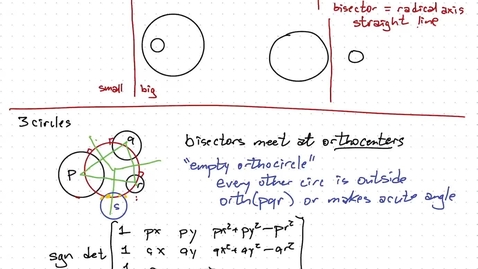 bisector = radical axis
straight line
small big
3 circles
bisectors meet at orthocenters
"empty orthocircle"
every other circ is outside
orth(pqr) or makes acute angle
p
q
r
s
sgn det
1 px py px²+py²-pr²
1 qx qy qx²+qy²-qr²